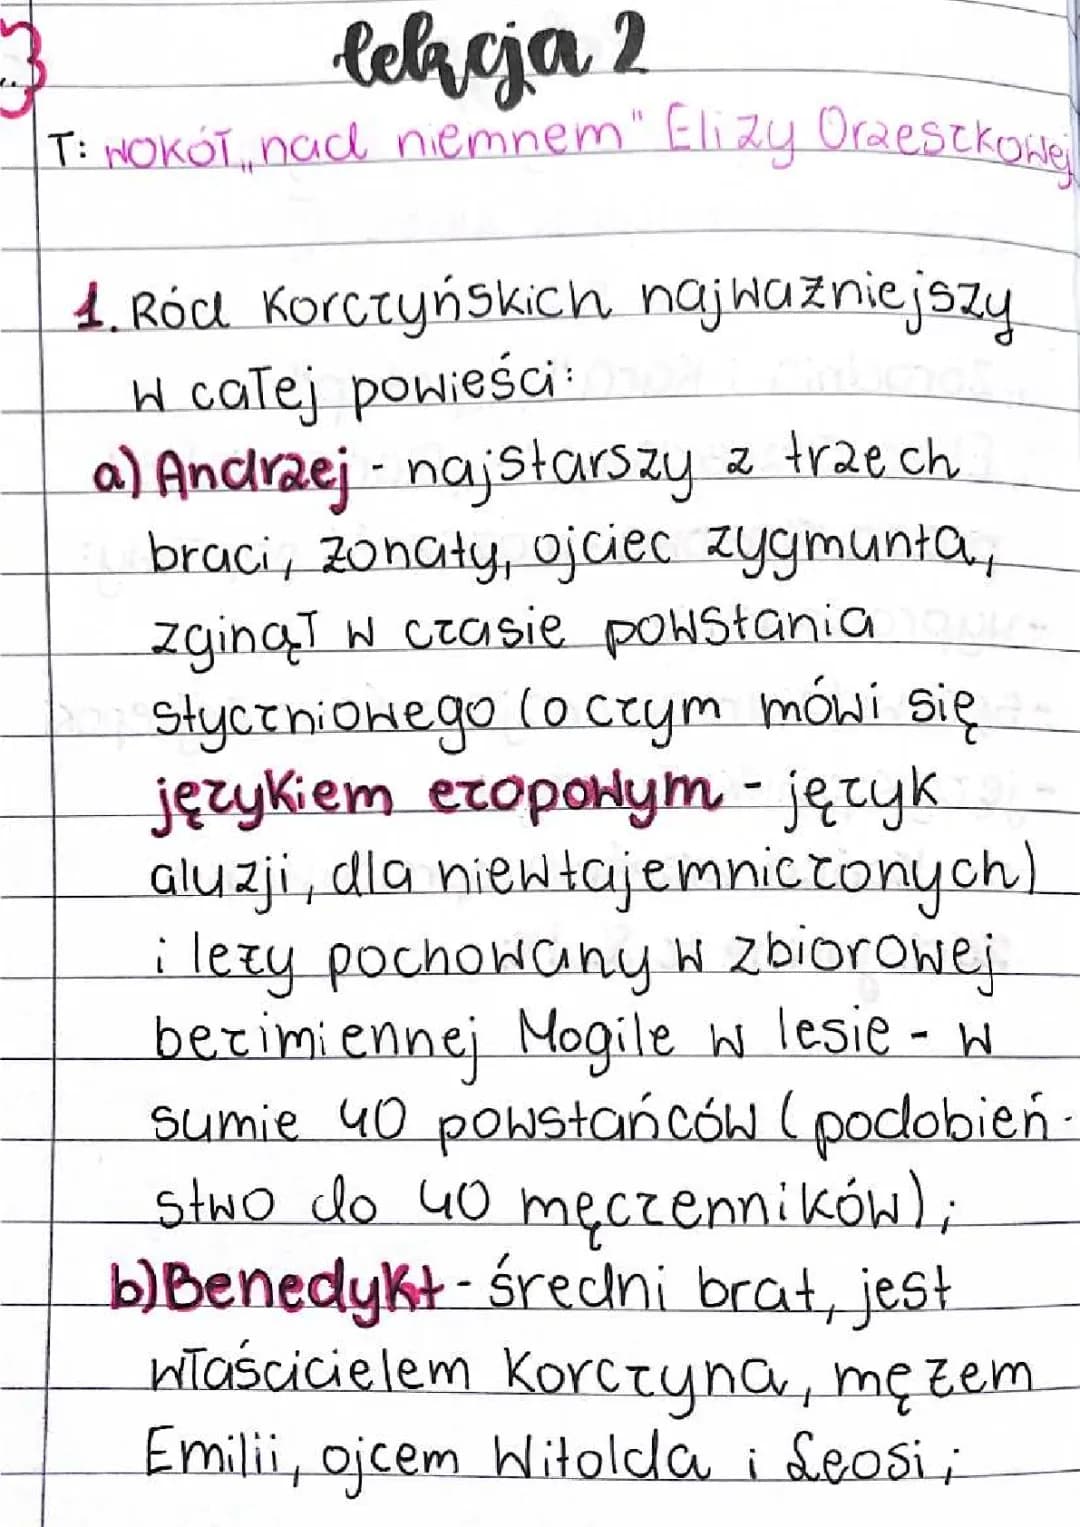 lekcja 2
T: WOKÓŁ „nad niemnem" Elizy Orzeszkowej
1. Ród Korczyńskich najważniejszy
w całej powieści:
a) Andrzej - najstarszy z trzech
braci, żonaty, ojciec zygmunta,
zginął w czasie powstania
styczniowego (o czym mówi się
językiem ezopowym - język
aluzji, dla niewtajemniczonych)
i leży pochowany w zbiorowej
bezimiennej Mogile w lesie - w
sumie 40 powstańców (podobień-
stwo do 40 męczenników);
b) Benedykt - średni brat, jest
właścicielem Korczyna, mężem
Emilii, ojcem Witolda i Leosi;